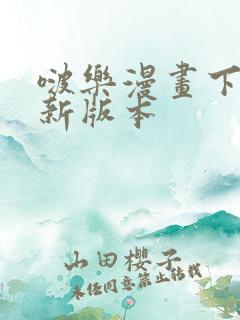 啵樂漫畫下
新版本
山田櫻子
未经同意禁止转载